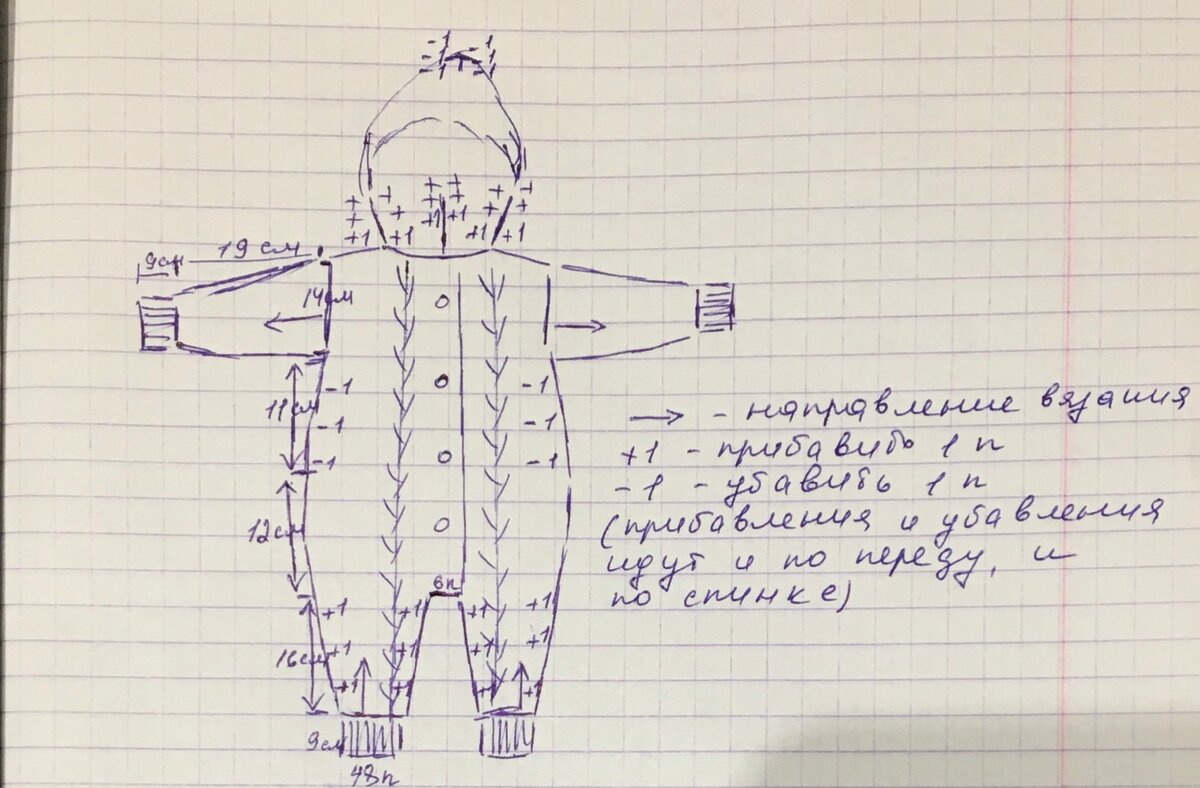 -1 -1
-1 -1
-1 -1
+ + + + + +
+ + + + + +
+1 +1 +1 +1 +1 +1
9см 19 см
14см
11см -1 -1
-1 -1
-1 -1
→ - направление вязания
+1 - прибавить 1 п
-1 - убавить 1 п
(прибавления и убавления
идут и по переду, и
по спинке)
12см
6п
+1 +1 +1 +1
16см +1 +1 +1 +1
+1 +1 +1 +1
9см
48п